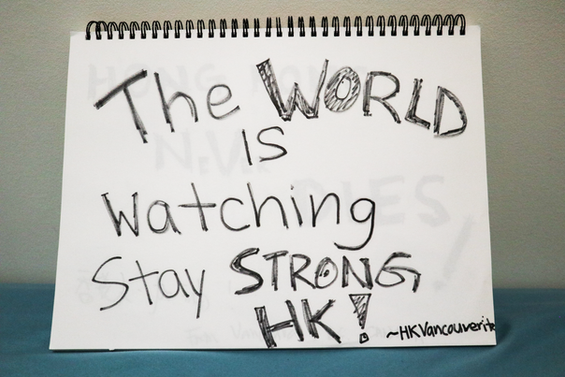 The WORLD
IS
Watching
Stay STRONG
HK!
~HKVancouverite